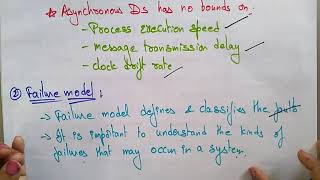 * Asynchronous DS has no bounds on
- Process execution speed
- message transmission delay
- clock drift rate
② Failure model :
→ Failure model defines & classifies the faults
→ It is important to understand the kinds of
failures that may occur in a system.